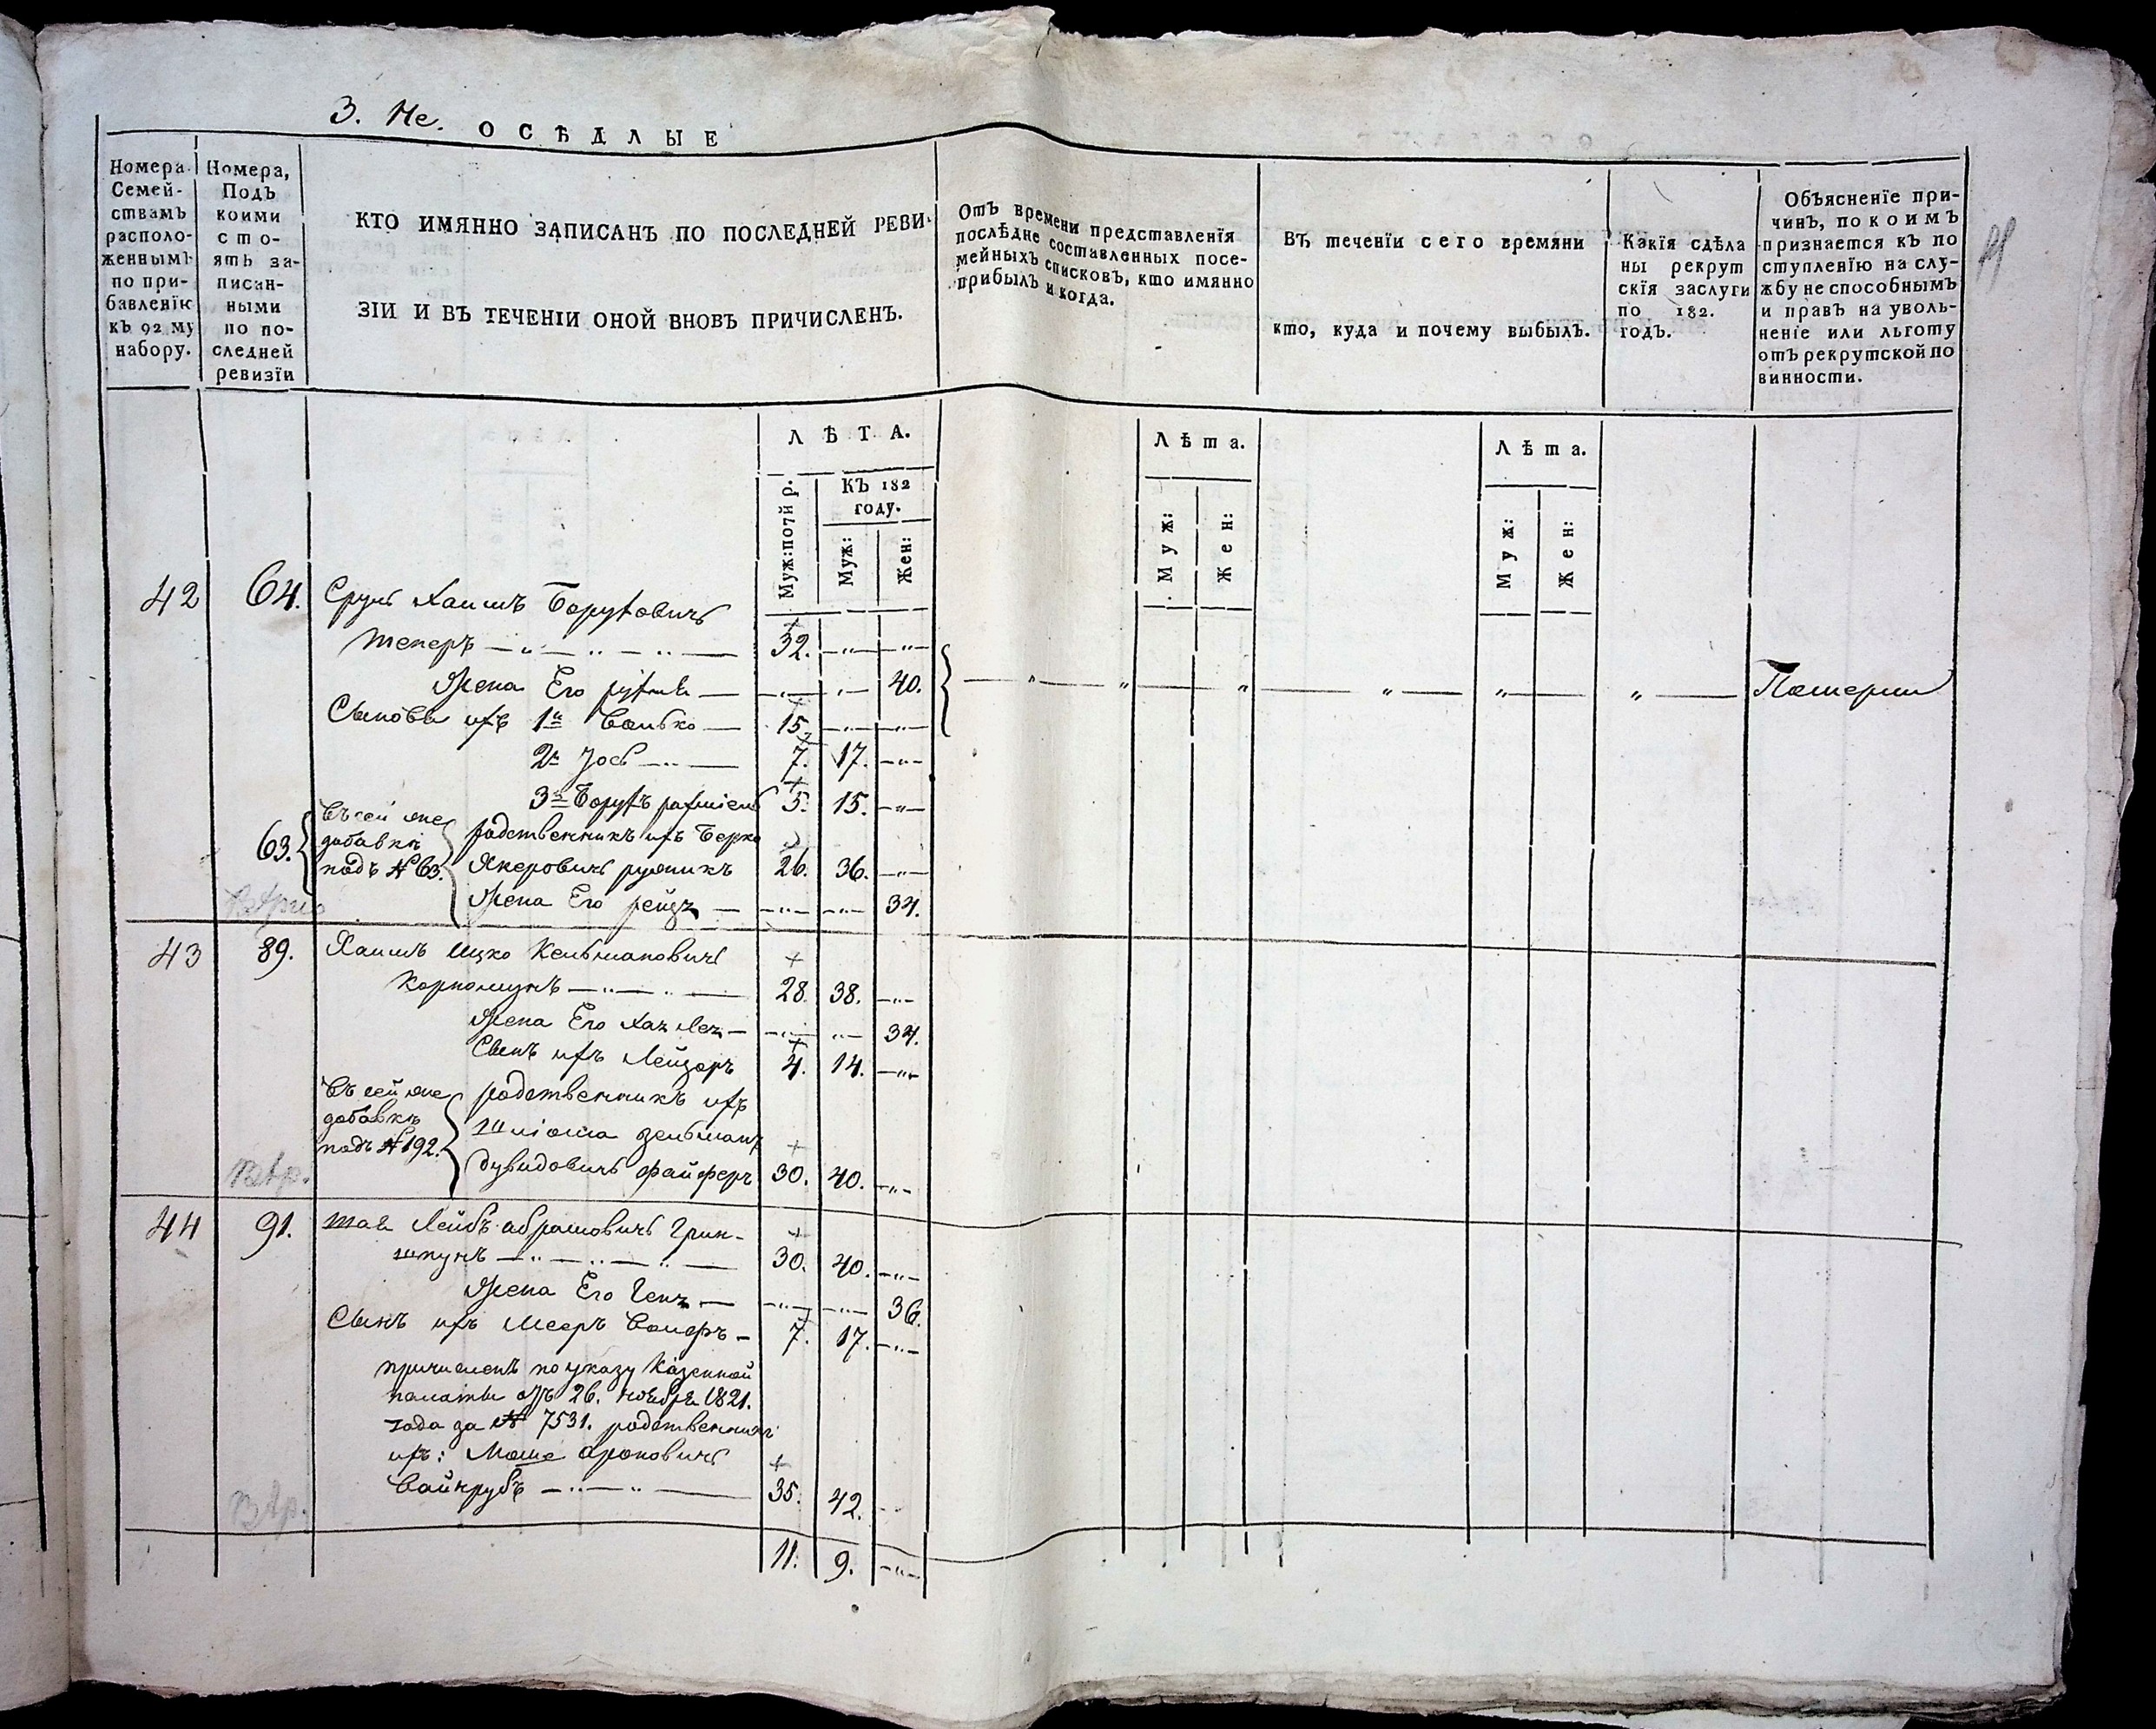 3. Не. ОСѢДЛЫЕ
Номера Семей-
ствамъ
располо-
женнымъ
по при-
бавленїю
къ 92 му
набору.
Номера,
Подъ
коими
сто-
ятъ за-
писан-
ными
по по-
следней
ревизїи
КТО ИМЯННО ЗАПИСАНЪ ПО ПОСЛЕДНЕЙ РЕВИ-
ЗІИ И ВЪ ТЕЧЕНІИ ОНОЙ ВНОВЬ ПРИЧИСЛЕНЪ.
Отъ времени представленїя
послѣдне составленныхъ посе-
мейныхъ списковъ, кто имянно
прибылъ и когда.
Въ теченїи сего времяни
кто, куда и почему выбылъ.
Какїя сдѣла
ны рекрут
скїя заслуги
по 182.
годъ.
Объясненїе при-
чинъ, по коимъ
признается къ по
ступленїю на слу-
жбу не способнымъ
и правъ на уволь-
ненїе или льготу
отъ рекрутской по
винности.
ЛѢТА.
Муж: по 7й р.
КЪ 182
году.
Муж:
Жен:
Лѣта.
Муж:
Жен:
Лѣта.
Муж:
Жен:
42 64. Сруль Хаимъ Боруховичъ
теперъ — 32. — —
Жена Его — — 40. Потерии
Сыновья ихъ 1й Волько — 15. — —
2й Іось — 7. 17. —
3й Борухъ 5. 15. —
63. въ сей же
добавки
подъ № 63.
родственникъ ихъ Берко
26. 36. —
Жена Его рейзя — — — 34.
43 89. Хаимъ Ицко Кельмановичъ
28. 38. —
Жена Его — — 34.
Сынъ ихъ Лейзоръ 4. 14. —
въ сей же
добавки
подъ № 192.
родственникъ ихъ
шліома зельманъ
дувидовичъ файферъ 30. 40. —
44 91. шая Лейбъ абрамовичъ Грин-
шпунъ — 30. 40. —
Жена Его Геня — — — 36.
Сынъ ихъ Меер Вольфъ — 7. 17. —
причисленъ по указу Казенной
палаты отъ 26. ноября 1821.
года за № 7531. родственникъ
ихъ: Моше ароновичъ
Вайнрубъ — 35. 42.
11. 9. —